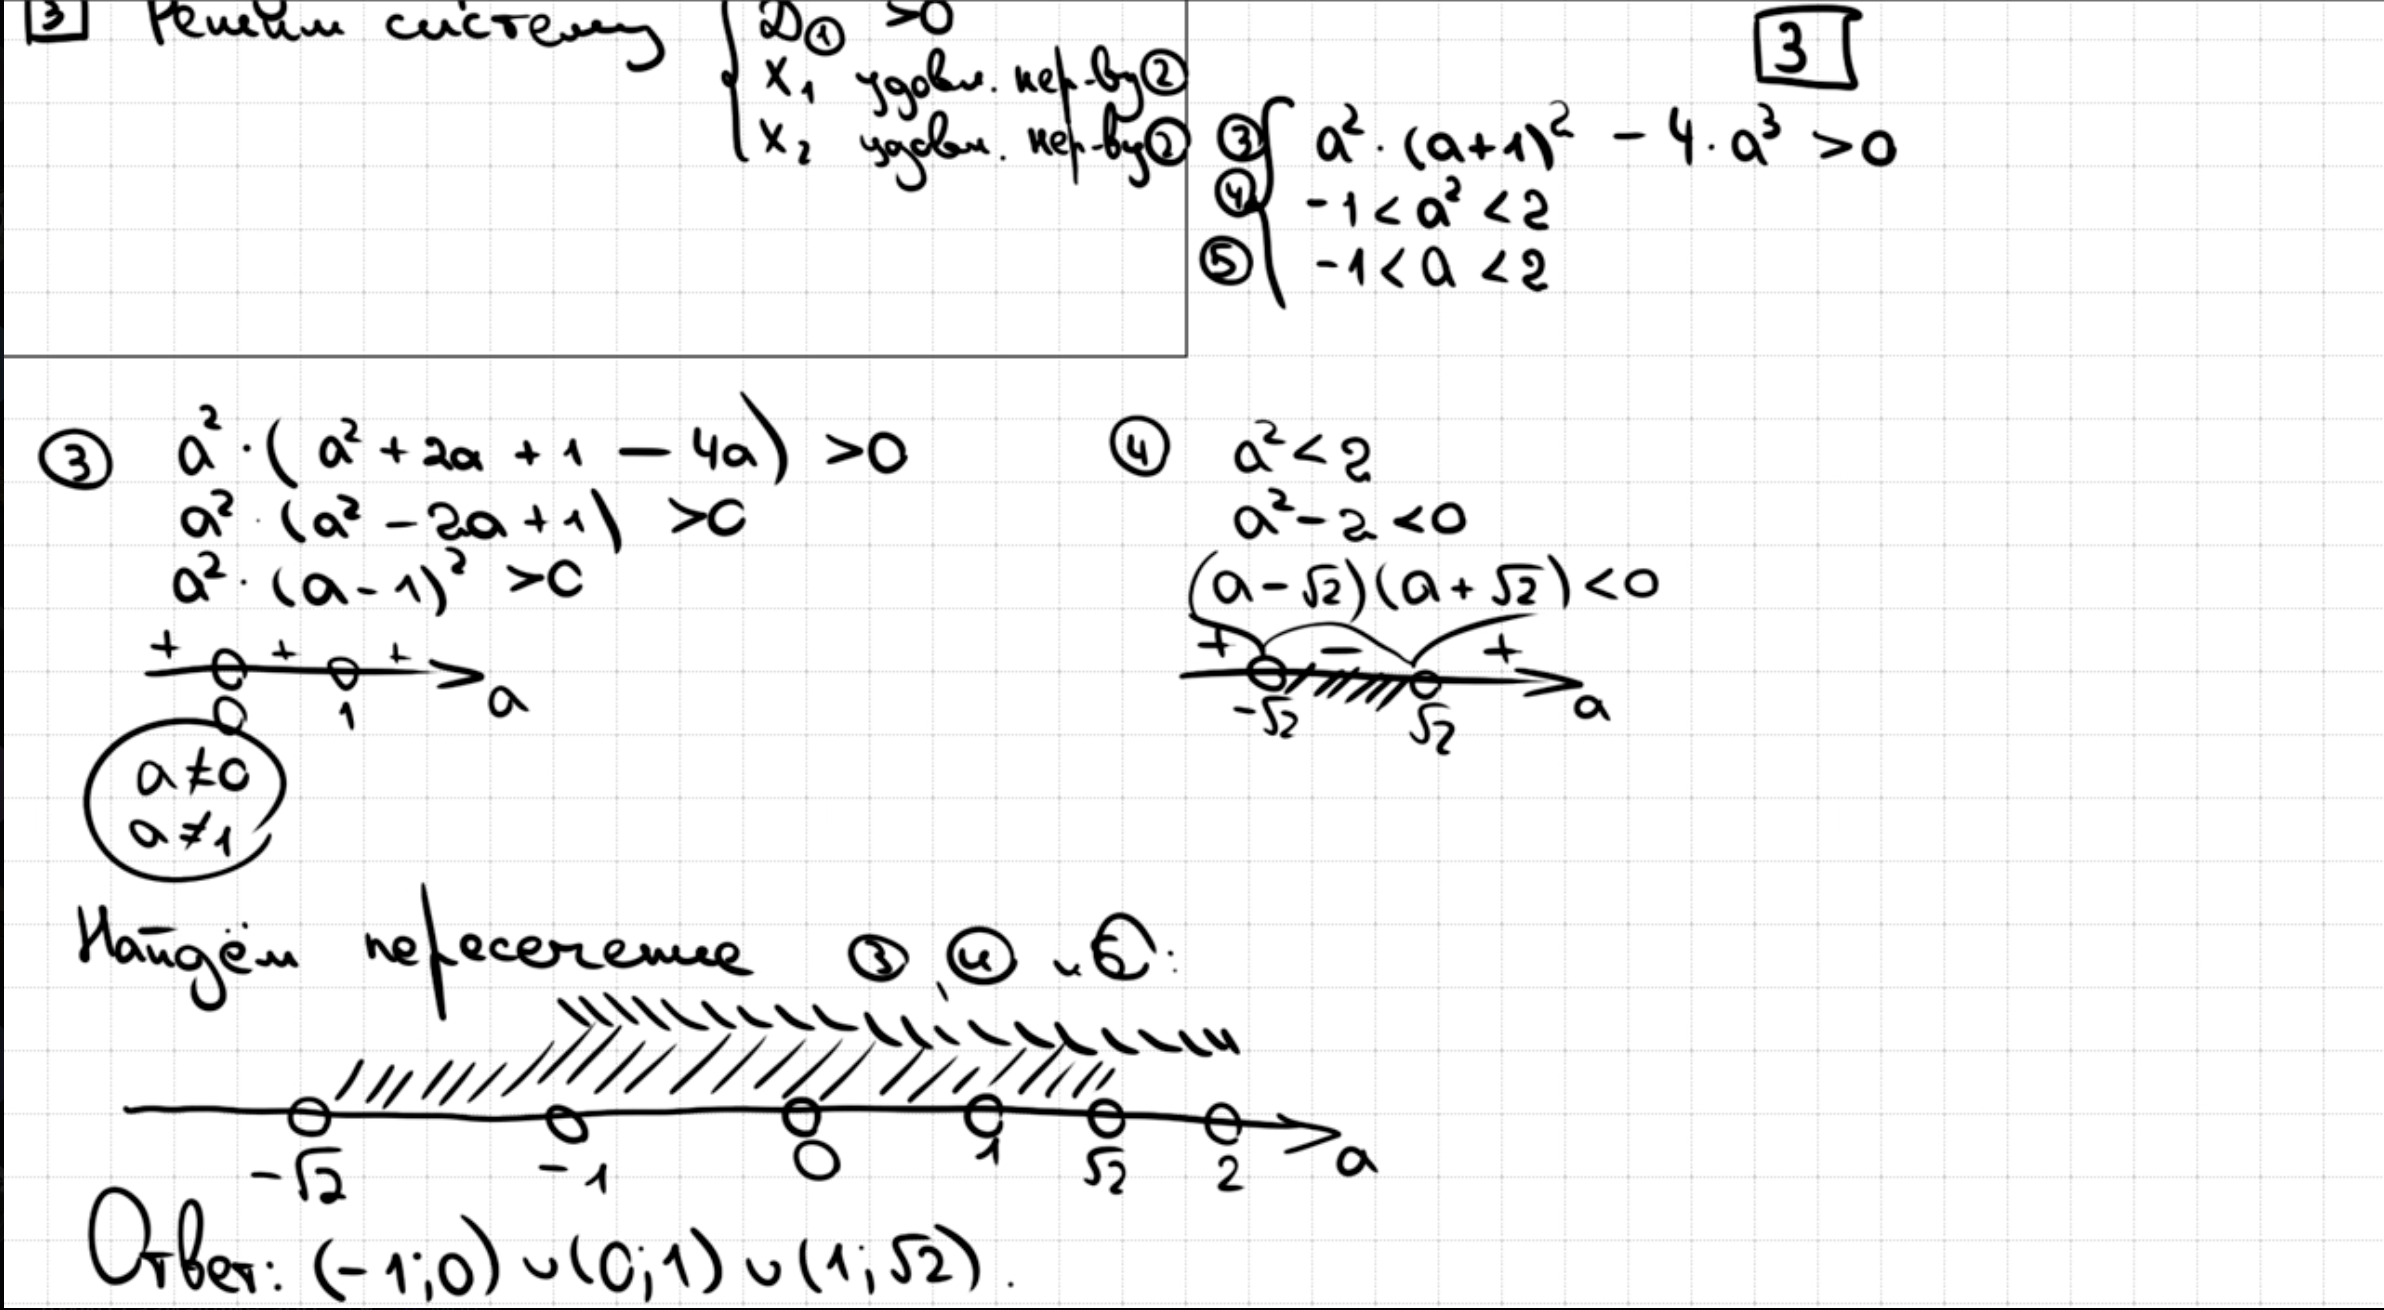 3 Решим систему { D① >0
x₁ удовл. нер-ву②
x₂ удовл. нер-ву②
3
③ { a²·(a+1)² - 4·a³ >0
④ -1 < a² < 2
⑤ -1 < a < 2
③ a²·(a² + 2a + 1 - 4a) >0
a²·(a² - 2a + 1) >0
a²·(a - 1)² >0
+ + +
0 1 a
a≠0
a≠1
④ a² < 2
a² - 2 < 0
(a - √2)(a + √2) < 0
+ - +
-√2 √2 a
Найдём пересечение ③, ④ и ⑤:
-√2 -1 0 1 √2 2 a
Ответ: (-1;0) ∪ (0;1) ∪ (1;√2).